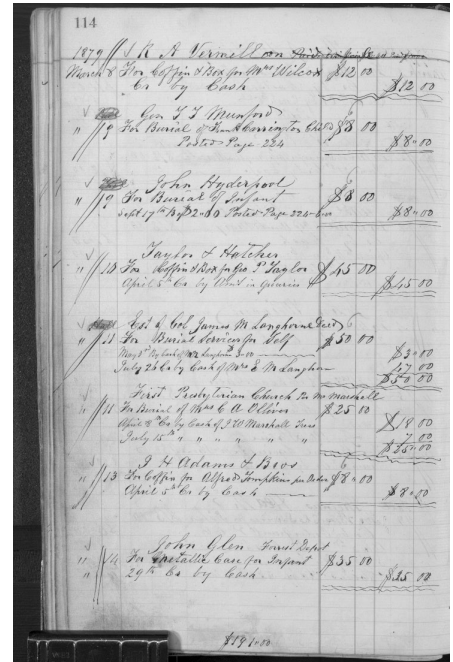 114
1879 R A Vermillion
March 8 For Coffin & Box for Mrs Wilcox $12 00
Cr by Cash $12 00
Gen T T Munford
" 9 For Burial of Child $8 00
Posted Page 224 $8 00
John Hyderpool
" 9 For Burial of Infant $8 00
Sept 17th Posted Page 224 $8 00
Taylor & Hatcher
" 10 For Coffin & Box for Geo P Taylor $45 00
April 5th Cr by in $45 00
Est of Col James M Langhorne Decd
" 11 For Burial Services for Self $50 00
May 3 00 $3 00
July 26 Cr by Cash of Mrs E M Langhorn 47 00
$50 00
First Presbyterian Church Per Mr Marshall
" 11 For Burial of Mrs C A Olliver $25 00
April 8th Cr by Cash of J W Marshall $18 00
July 15th " " " " " 7 00
$25 00
J H Adams & Bros
" 13 For Coffin for Alfred Tompkins per Order $8 00
April 5th Cr by Cash $8 00
John Glen Forest Depot
" 14 For Metallic Case for Infant $35 00
" 29th Cr by Cash $35 00
$191 00